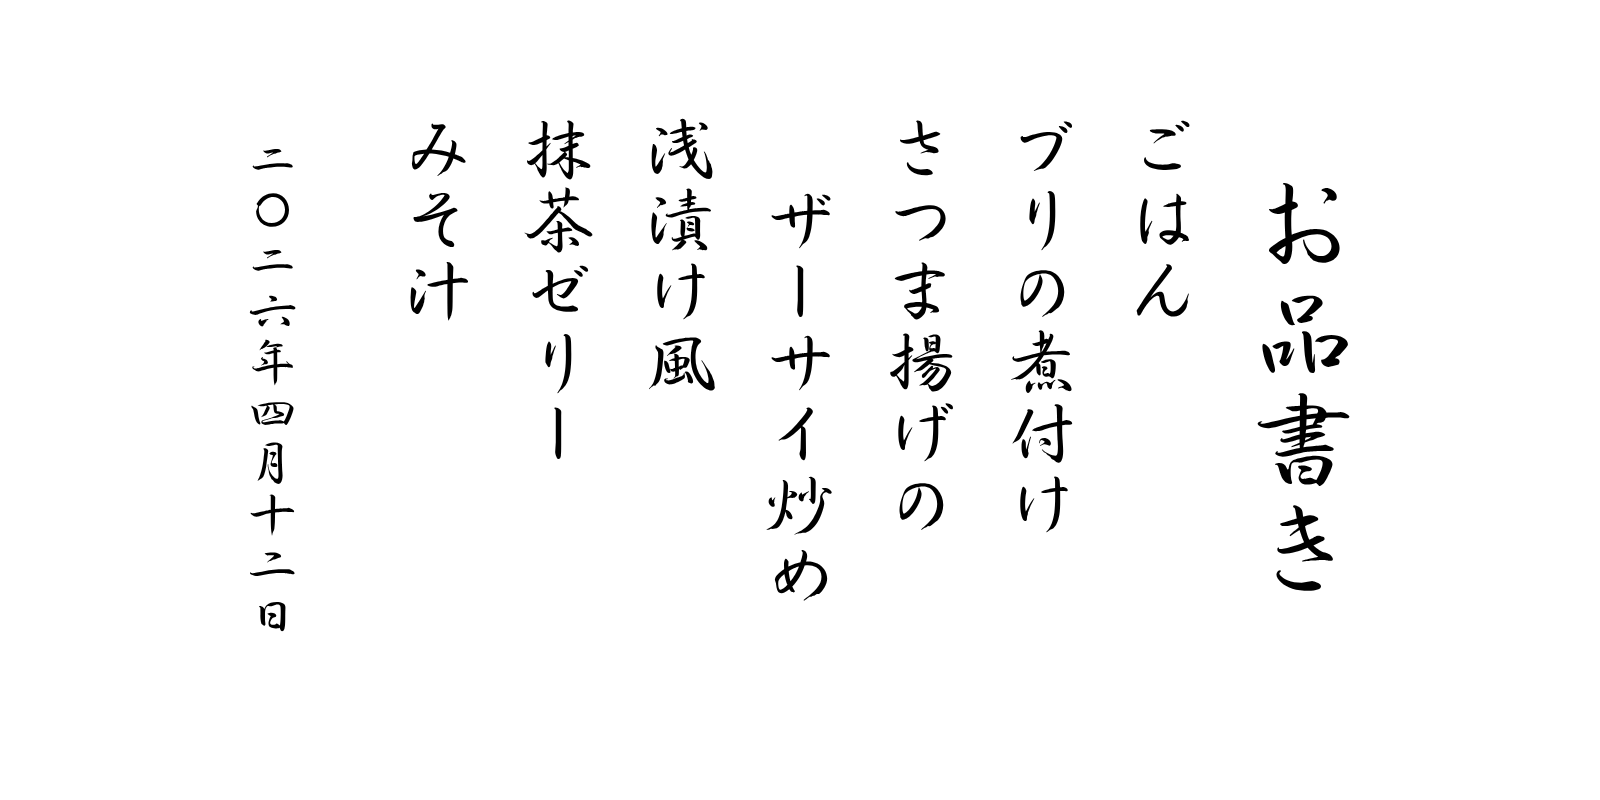 お品書き
ごはん
ブリの煮付け
さつま揚げの
ザーサイ炒め
浅漬け風
抹茶ゼリー
みそ汁
二〇二六年四月十二日